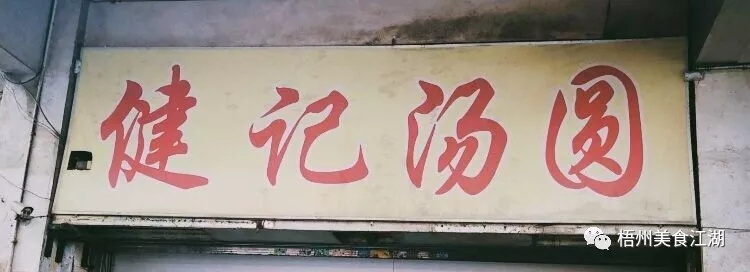 健记汤圆
梧州美食江湖